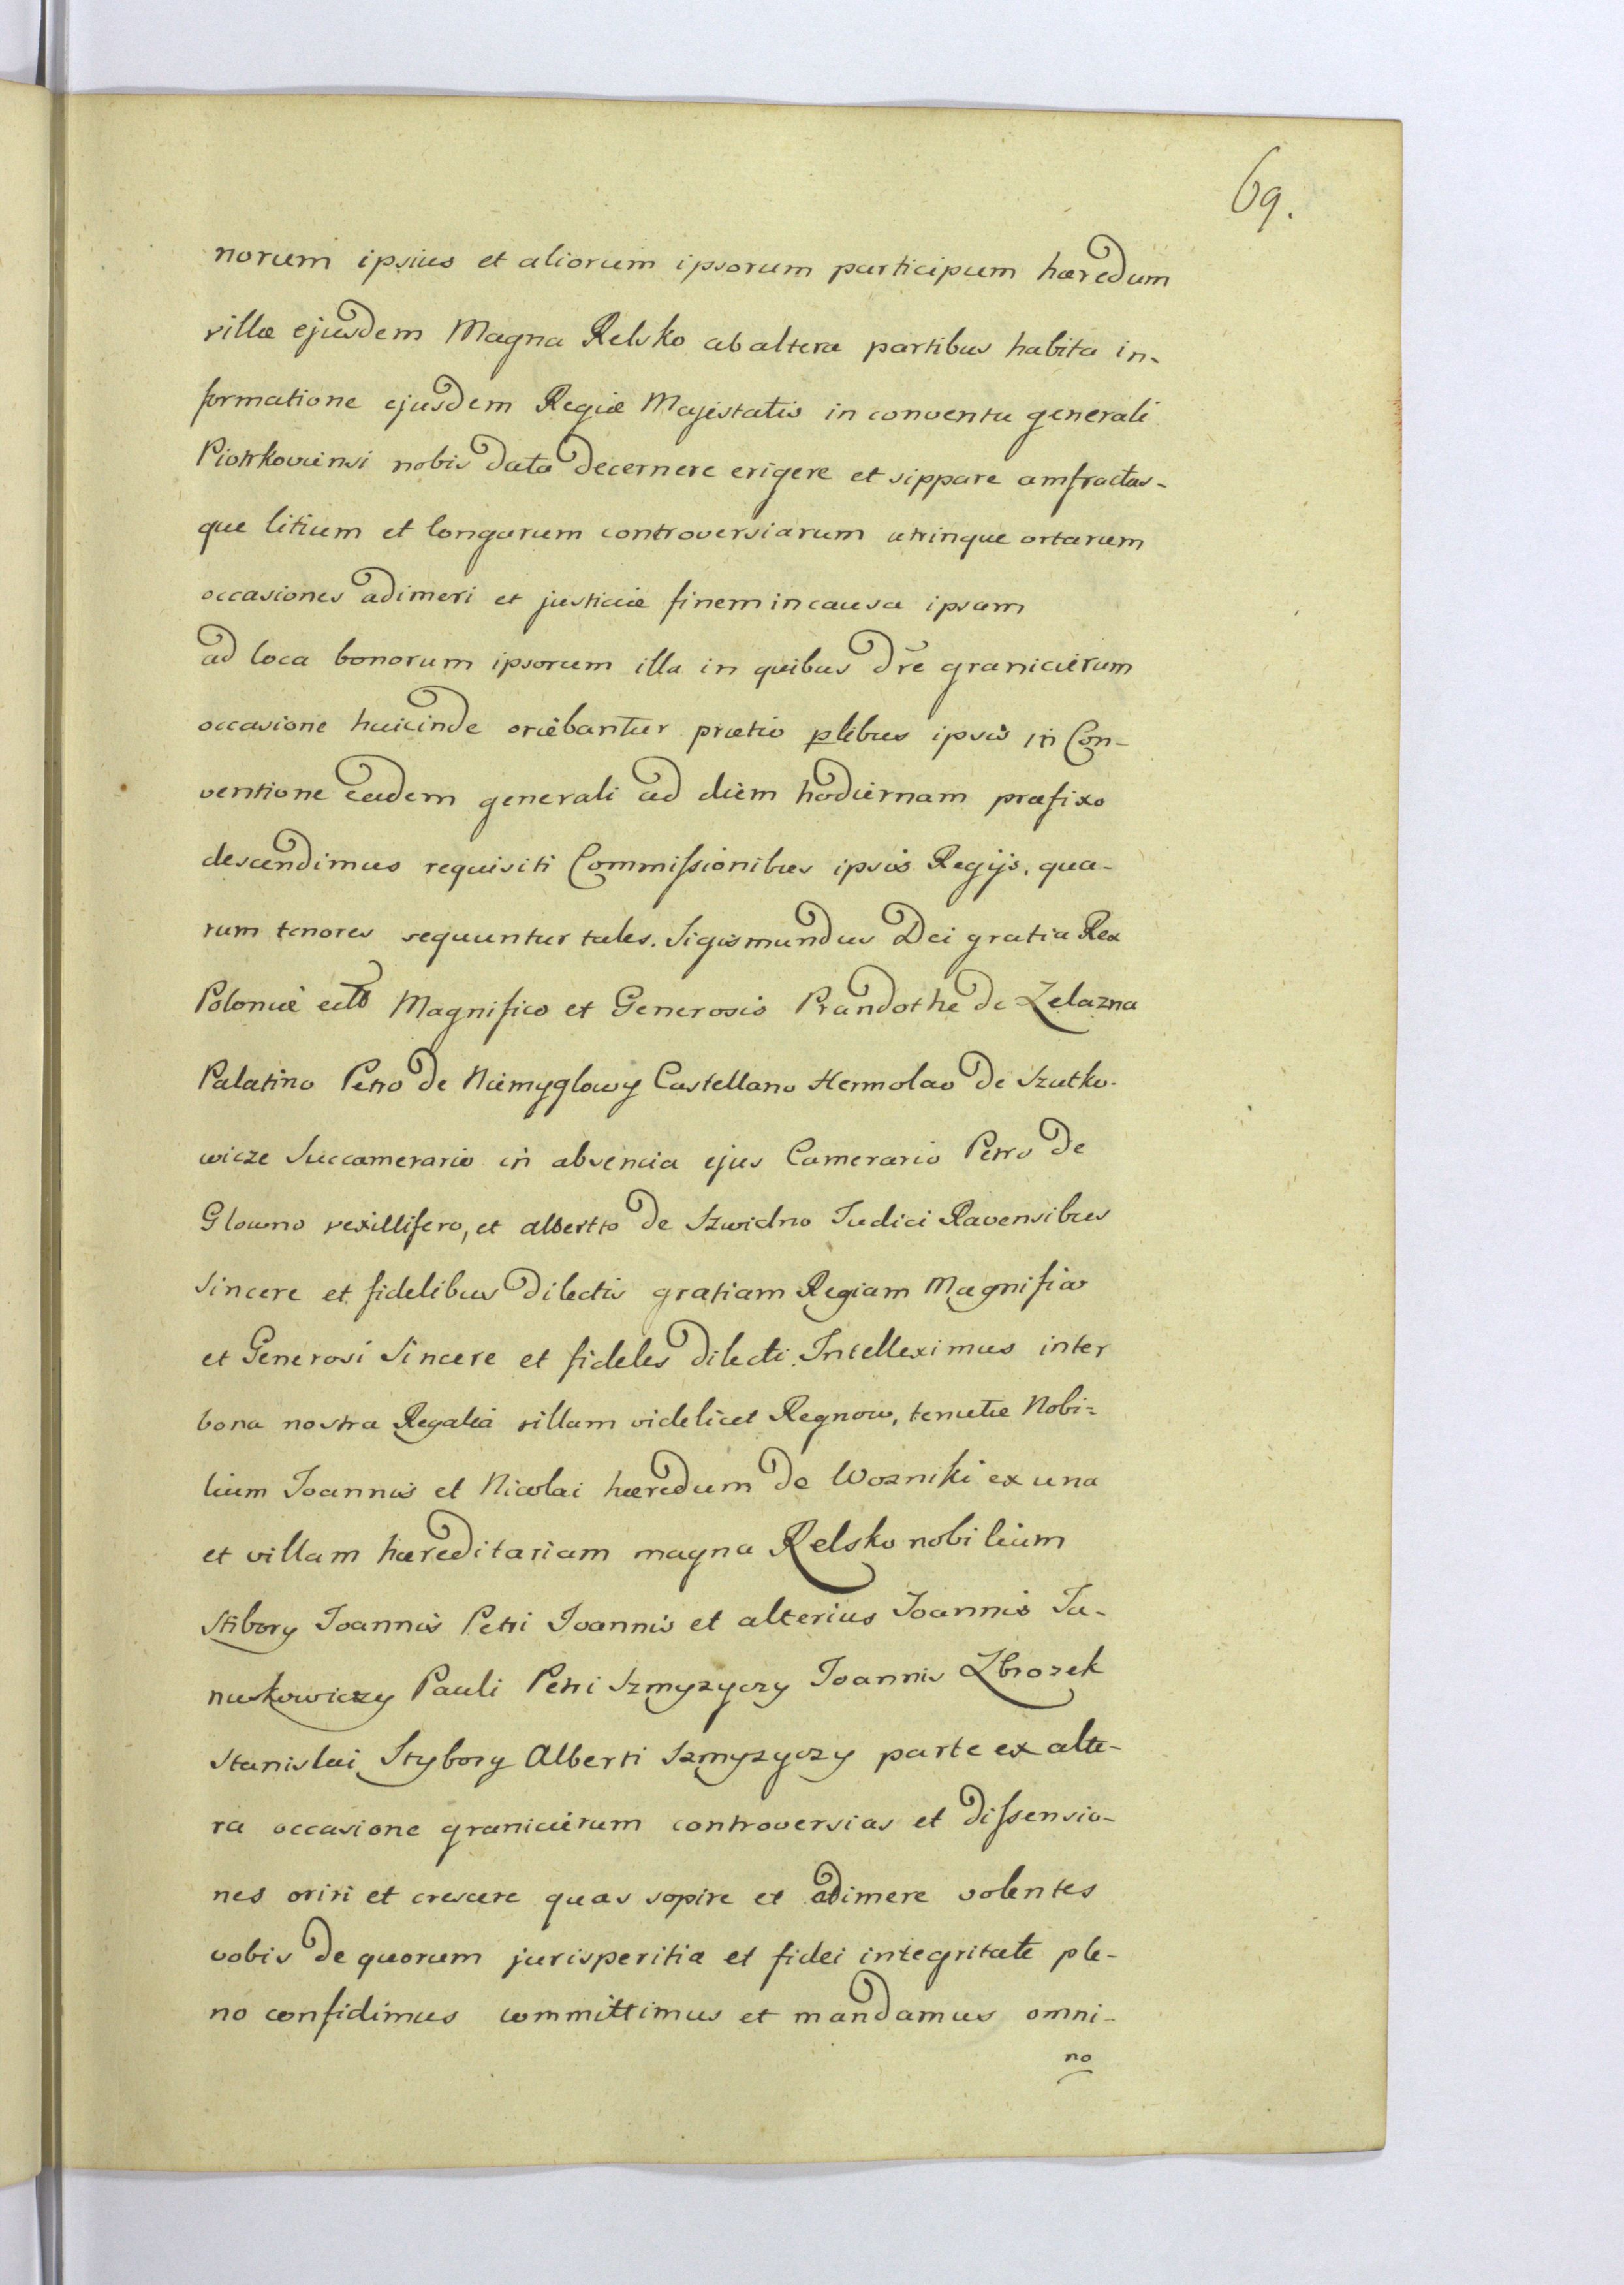 69.
norum ipsius et aliorum ipsorum participum hæredum
villæ ejusdem Magna Relsko ab altera partibus habita in-
formatione ejusdem Regiæ Majestatis in conventu generali
Piotrkoviensi nobis data decernere erigere et sippare amfractas-
que litium et longarum controversiarum utrinque ortarum
occasiones adimeri et justiciæ finem in causa ipsam
ad loca bonorum ipsorum illa in quibus dr̃e granicierum
occasione huicinde oriebantur prætio plibus ipsis in Con-
ventione eadem generali ad diem hodiernam præfixo
descendimus requisiti Commissionibus ipsis Regijs, qua-
rum tenores sequuntur tales. Sigismundus Dei gratia Rex
Poloniæ Magnifico et Generosis Prandothe de Zelazna
Palatino Petro de Niemyglowy Castellano Hermolao de Szutko-
wicze Succamerario in absencia ejus Camerario Petro de
Glowno vexillifero, et alberto de Szwidno Judici Ravensibus
Sincere et fidelibus dilectis gratiam Regiam Magnifico
et Generosi Sincere et fideles dilecti. Intelleximus inter
bona nostra Regalia villam videlicet Regnow, tenutæ Nobi=
lium Joannis et Nicolai hæredum de Wozniki ex una
et villam hæreditariam magna Relsko nobilium
Stibory Joannis Petri Joannis et alterius Joannis Ja-
nuskowiczy Pauli Petri Szmyzyczy Joannis Zbrozek
Stanislai Stybory Alberti Szmyzyczy parte ex alte-
ra occasione granicierum controversias et dissensio-
nes oriri et crescere quas sopire et adimere volentes
vobis de quorum jurisperitia et fidei integritate ple-
no confidimus committimus et mandamus omni-
no